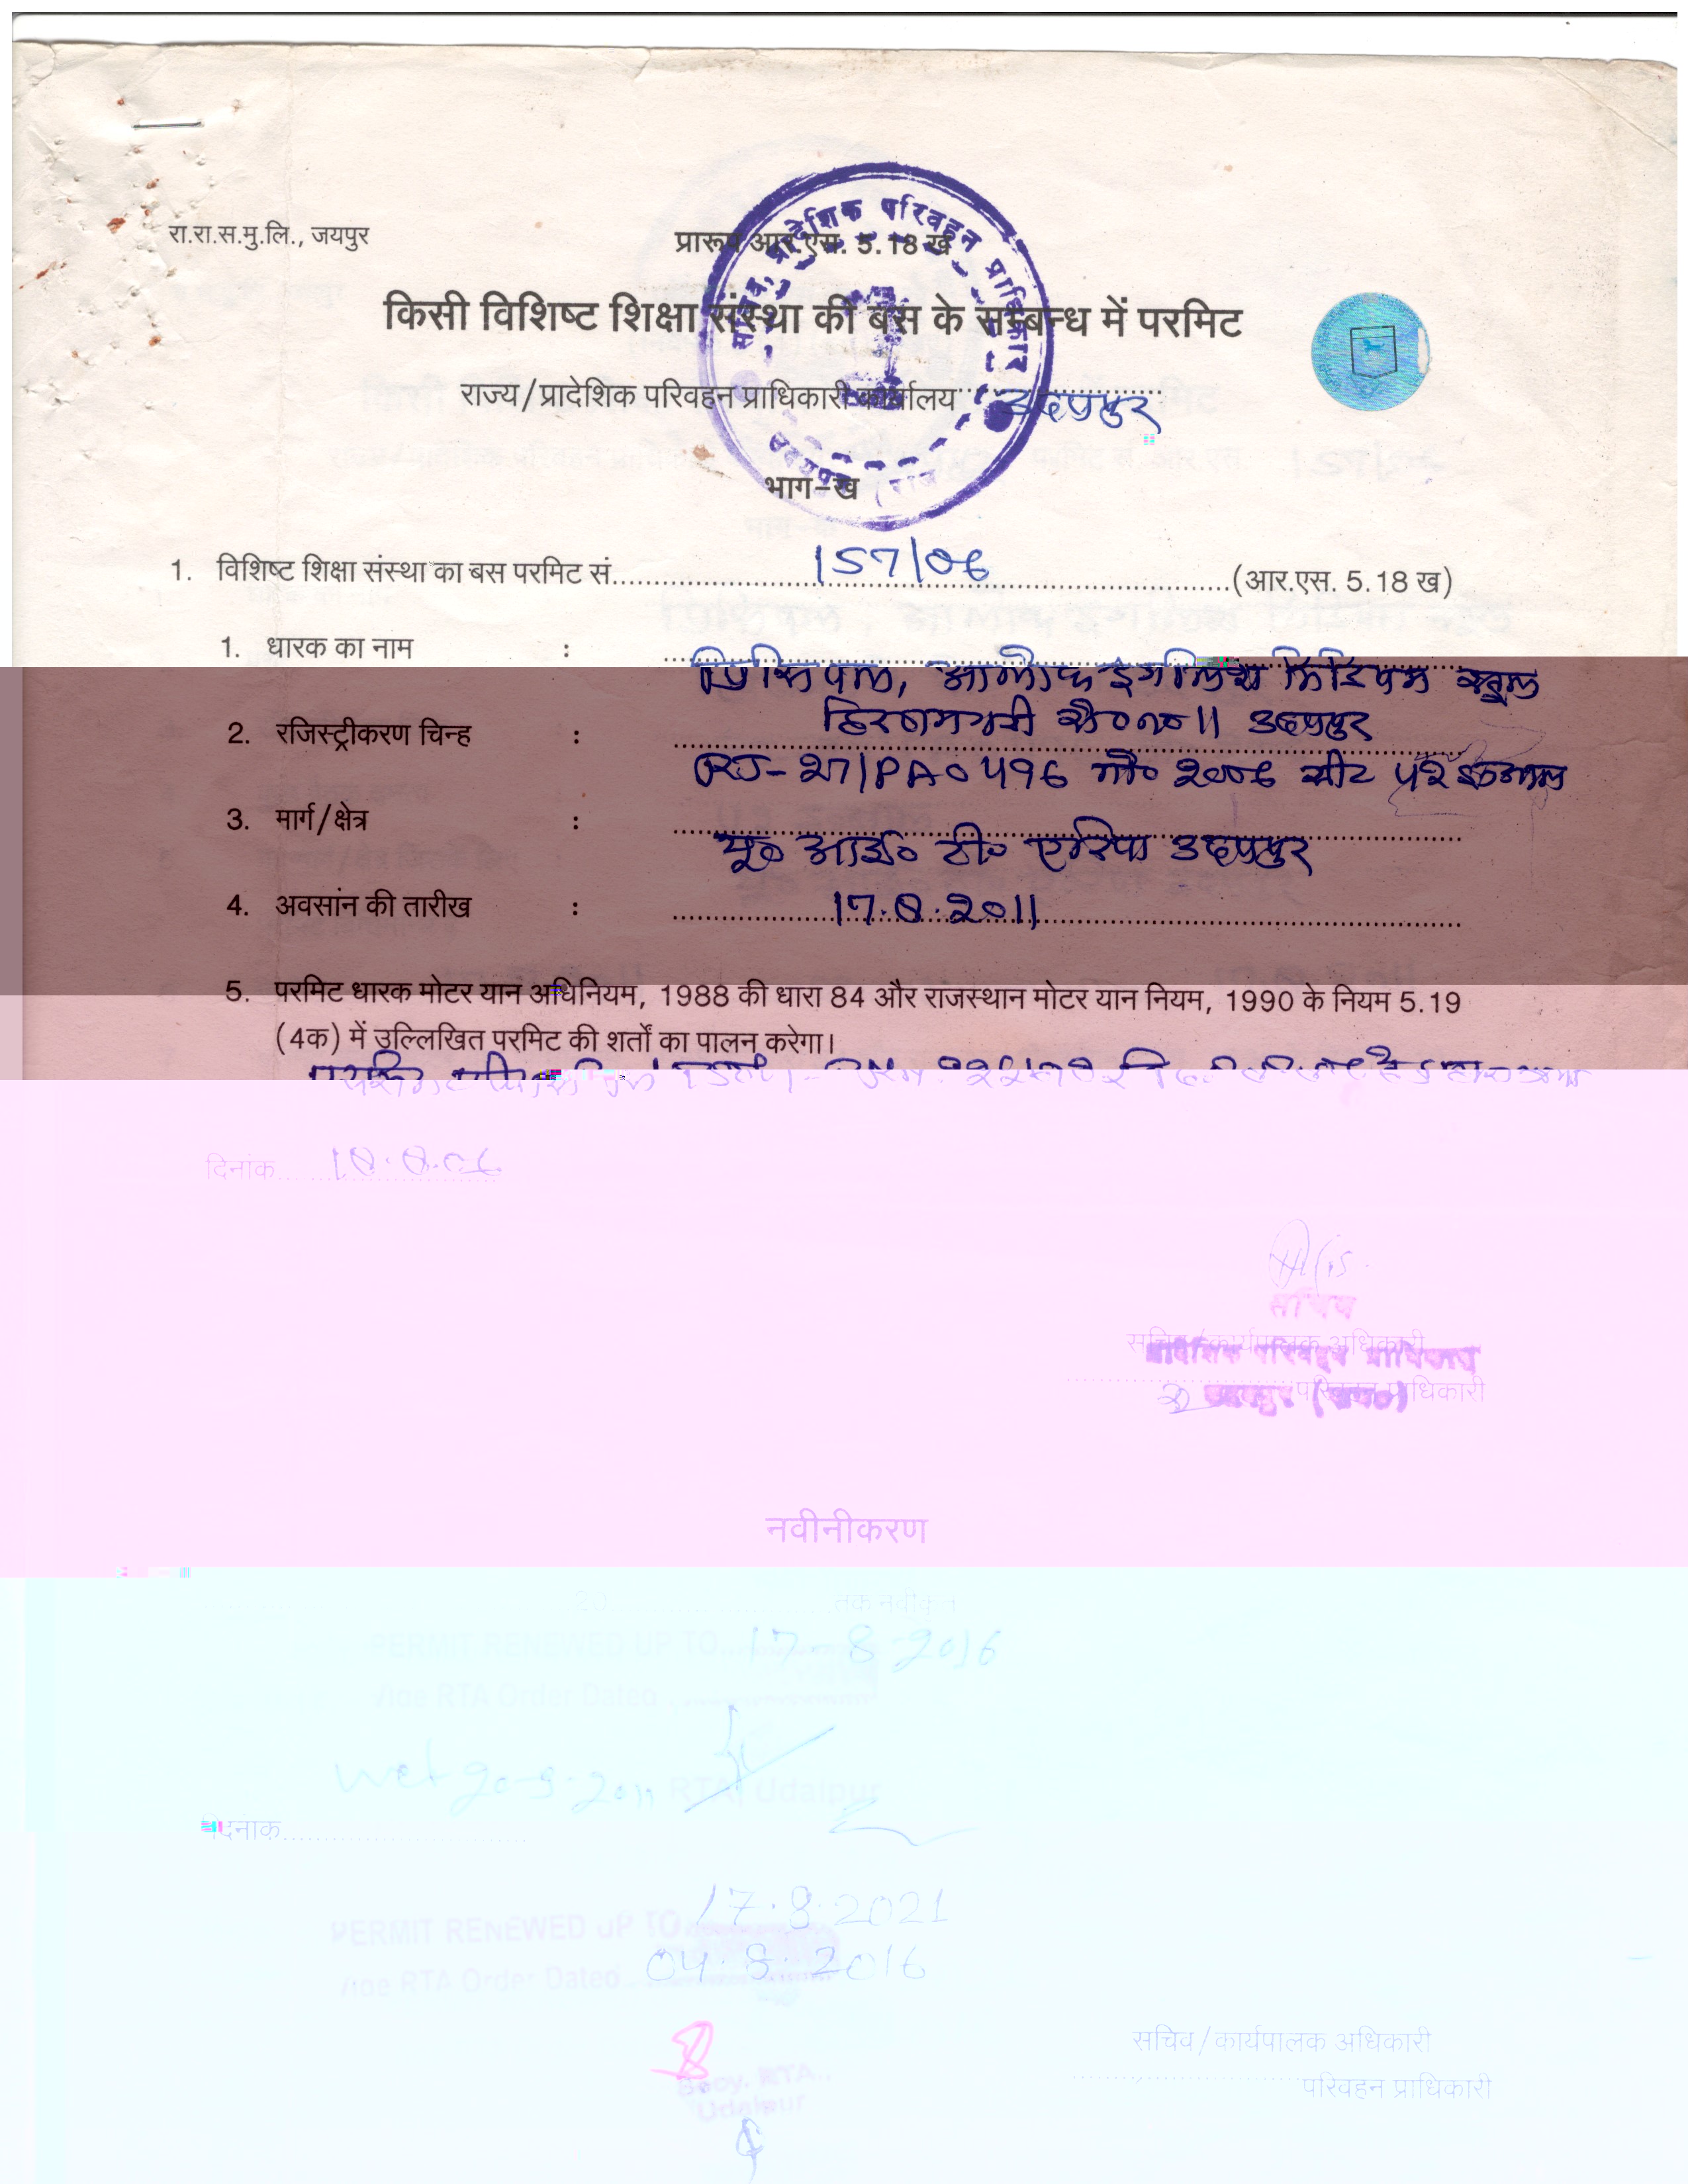 रा.रा.स.मु.लि., जयपुर
प्रारूप आर.एस. 5.18 ख
किसी विशिष्ट शिक्षा संस्था की बस के सम्बन्ध में परमिट
राज्य/प्रादेशिक परिवहन प्राधिकारी कार्यालय उदयपुर
भाग–ख
1. विशिष्ट शिक्षा संस्था का बस परमिट सं. 157/06 (आर.एस. 5.18 ख)
1. धारक का नाम :
प्रिंसिपल, आलोक इंगलिश मिडियम स्कूल
हिरणमगरी से०न० 11 उदयपुर
2. रजिस्ट्रीकरण चिन्ह :
RJ-27/PA0496 मॉ० 2006 सीट 42
3. मार्ग/क्षेत्र :
यू० आई० टी० एरिया उदयपुर
4. अवसांन की तारीख : 17.8.2011
5. परमिट धारक मोटर यान अधिनियम, 1988 की धारा 84 और राजस्थान मोटर यान नियम, 1990 के नियम 5.19
(4क) में उल्लिखित परमिट की शर्तों का पालन करेगा।
दिनांक 18.8.06
सचिव
सचिव/कार्यपालक अधिकारी
प्रादेशिक परिवहन प्राधिकार
परिवहन प्राधिकारी
उदयपुर (राज०)
नवीनीकरण
20 तक नवीकृत
PERMIT RENEWED UP TO 17-8-2016
Vide RTA Order Dated
wef 20-9-2011 RTA Udaipur
दिनांक
PERMIT RENEWED UP TO 17.8.2021
Vide RTA Order Dated 04.8.2016
सचिव/कार्यपालक अधिकारी
Secy. RTA.
परिवहन प्राधिकारी
Udaipur